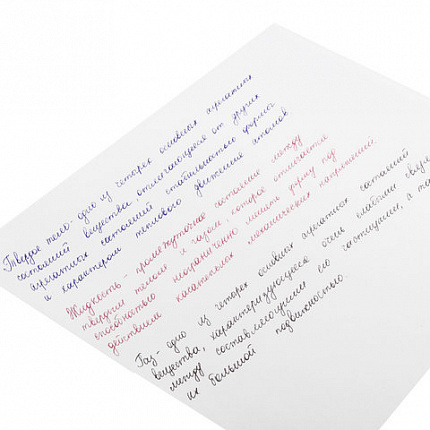 Твердое тело - одно из четырех основных агрегатных
состояний вещества, отличающееся от других
агрегатных состояний стабильностью формы
и характером теплового движения атомов
Жидкость - промежуточное состояние между
твердым телом и газом, которое отличается
способностью неограниченно менять форму под
действием касательных механических напряжений.
Газ - одно из четырех основных агрегатных состояний
вещества, характеризующееся очень слабыми связ
между составляющими его частицами, а та
их большой подвижностью.